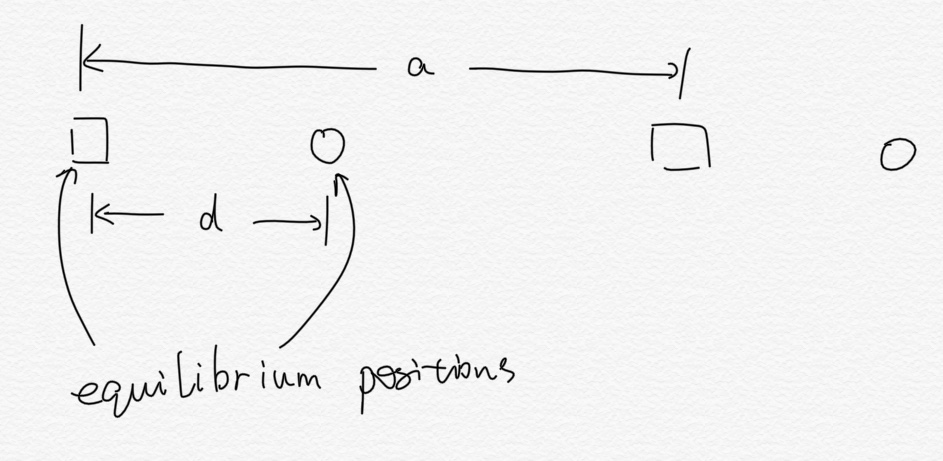 a
d
equilibrium positions